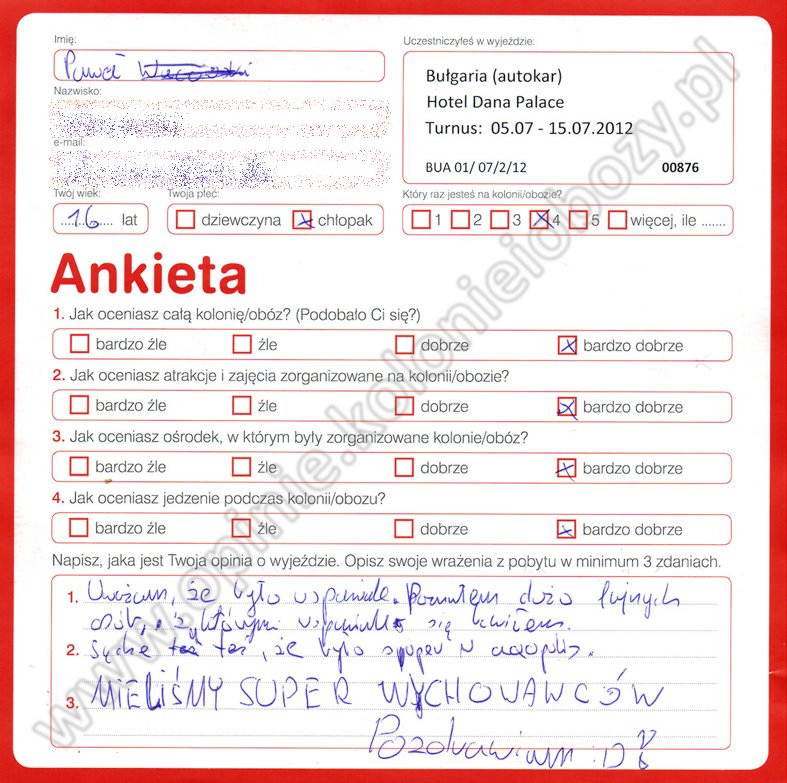 Imię:
Paweł
Uczestniczyłeś w wyjeździe:
Bułgaria (autokar)
Hotel Dana Palace
Turnus: 05.07 - 15.07.2012
BUA 01/ 07/2/12 00876
Nazwisko:
e-mail:
Twój wiek:
16 lat
Twoja płeć:
dziewczyna chłopak
Który raz jesteś na kolonii/obozie?
1 2 3 4 5 więcej, ile .......
Ankieta
1. Jak oceniasz całą kolonię/obóz? (Podobało Ci się?)
bardzo źle źle dobrze bardzo dobrze
2. Jak oceniasz atrakcje i zajęcia zorganizowane na kolonii/obozie?
bardzo źle źle dobrze bardzo dobrze
3. Jak oceniasz ośrodek, w którym były zorganizowane kolonie/obóz?
bardzo źle źle dobrze bardzo dobrze
4. Jak oceniasz jedzenie podczas kolonii/obozu?
bardzo źle źle dobrze bardzo dobrze
Napisz, jaka jest Twoja opinia o wyjeździe. Opisz swoje wrażenia z pobytu w minimum 3 zdaniach.
1. Uważam, że było wspaniale. Poznałem dużo fajnych
osób, z którymi wspaniale się bawiłem.
2. Sądzę też, że było super w
3. MIELIŚMY SUPER WYCHOWAWCÓW
Pozdrawiam :D
www.opinie.kolonieiobozy.pl